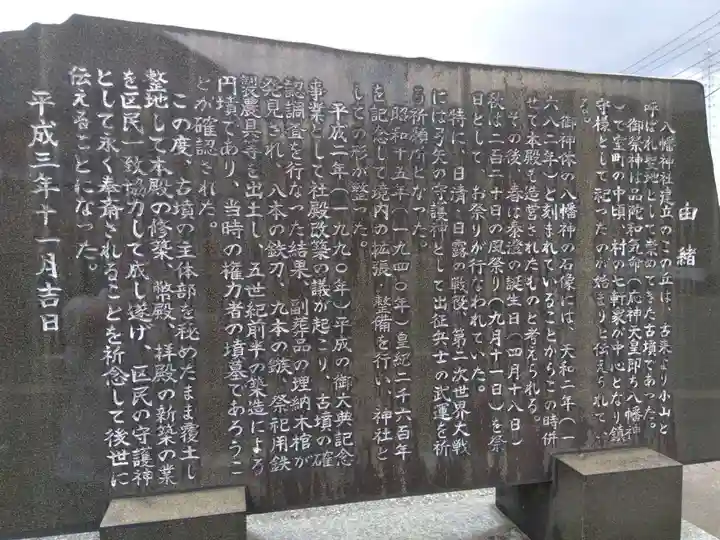 由緒
八幡神社建立のこの丘は、古来より小山と
呼ばれ聖地として崇めてきた古墳であった。
御祭神は品陀和気命(応神天皇即ち八幡神
)で室町の中頃、村の七軒家が中心となり鎮
守様として祀ったのが始まりと伝えられてい
る。
御神体の八幡神の石像には、天和二年(一
六八二年)と刻まれていることからこの時併
せて本殿も造営されたものと考えられる。
その後、春は秦澄の誕生日(四月十八日)
秋は二百二十日の風祭り(九月十一日)を祭
日として、お祭りが行なわれていた。
特に、日清・日露の戦役、第二次世界大戦
には弓矢の守護神として出征兵士の武運を祈
る祈願所となった。
昭和十五年(一九四〇年)皇紀二千六百年
を記念して境内の拡張・整備を行い、神社と
しての形が整った。
平成二年(一九九〇年)平成の御大典記念
事業として社殿改築の議が起こり、古墳の確
認調査を行なった結果、副葬品の埋納木棺が
発見され、八本の鉄刀、九本の鏃、祭祀用鉄
製農具等を出土し、五世紀前半の築造による
円墳であり、当時の権力者の墳墓であろうこ
とが確認された。
この度、古墳の主体部を秘めたまま覆土し
整地して本殿の修築、幣殿、拝殿の新築の業
を区民一致協力して成し遂げ、区民の守護神
として永く奉斎されることを祈念して後世に
伝えることになった。
平成三年十一月吉日